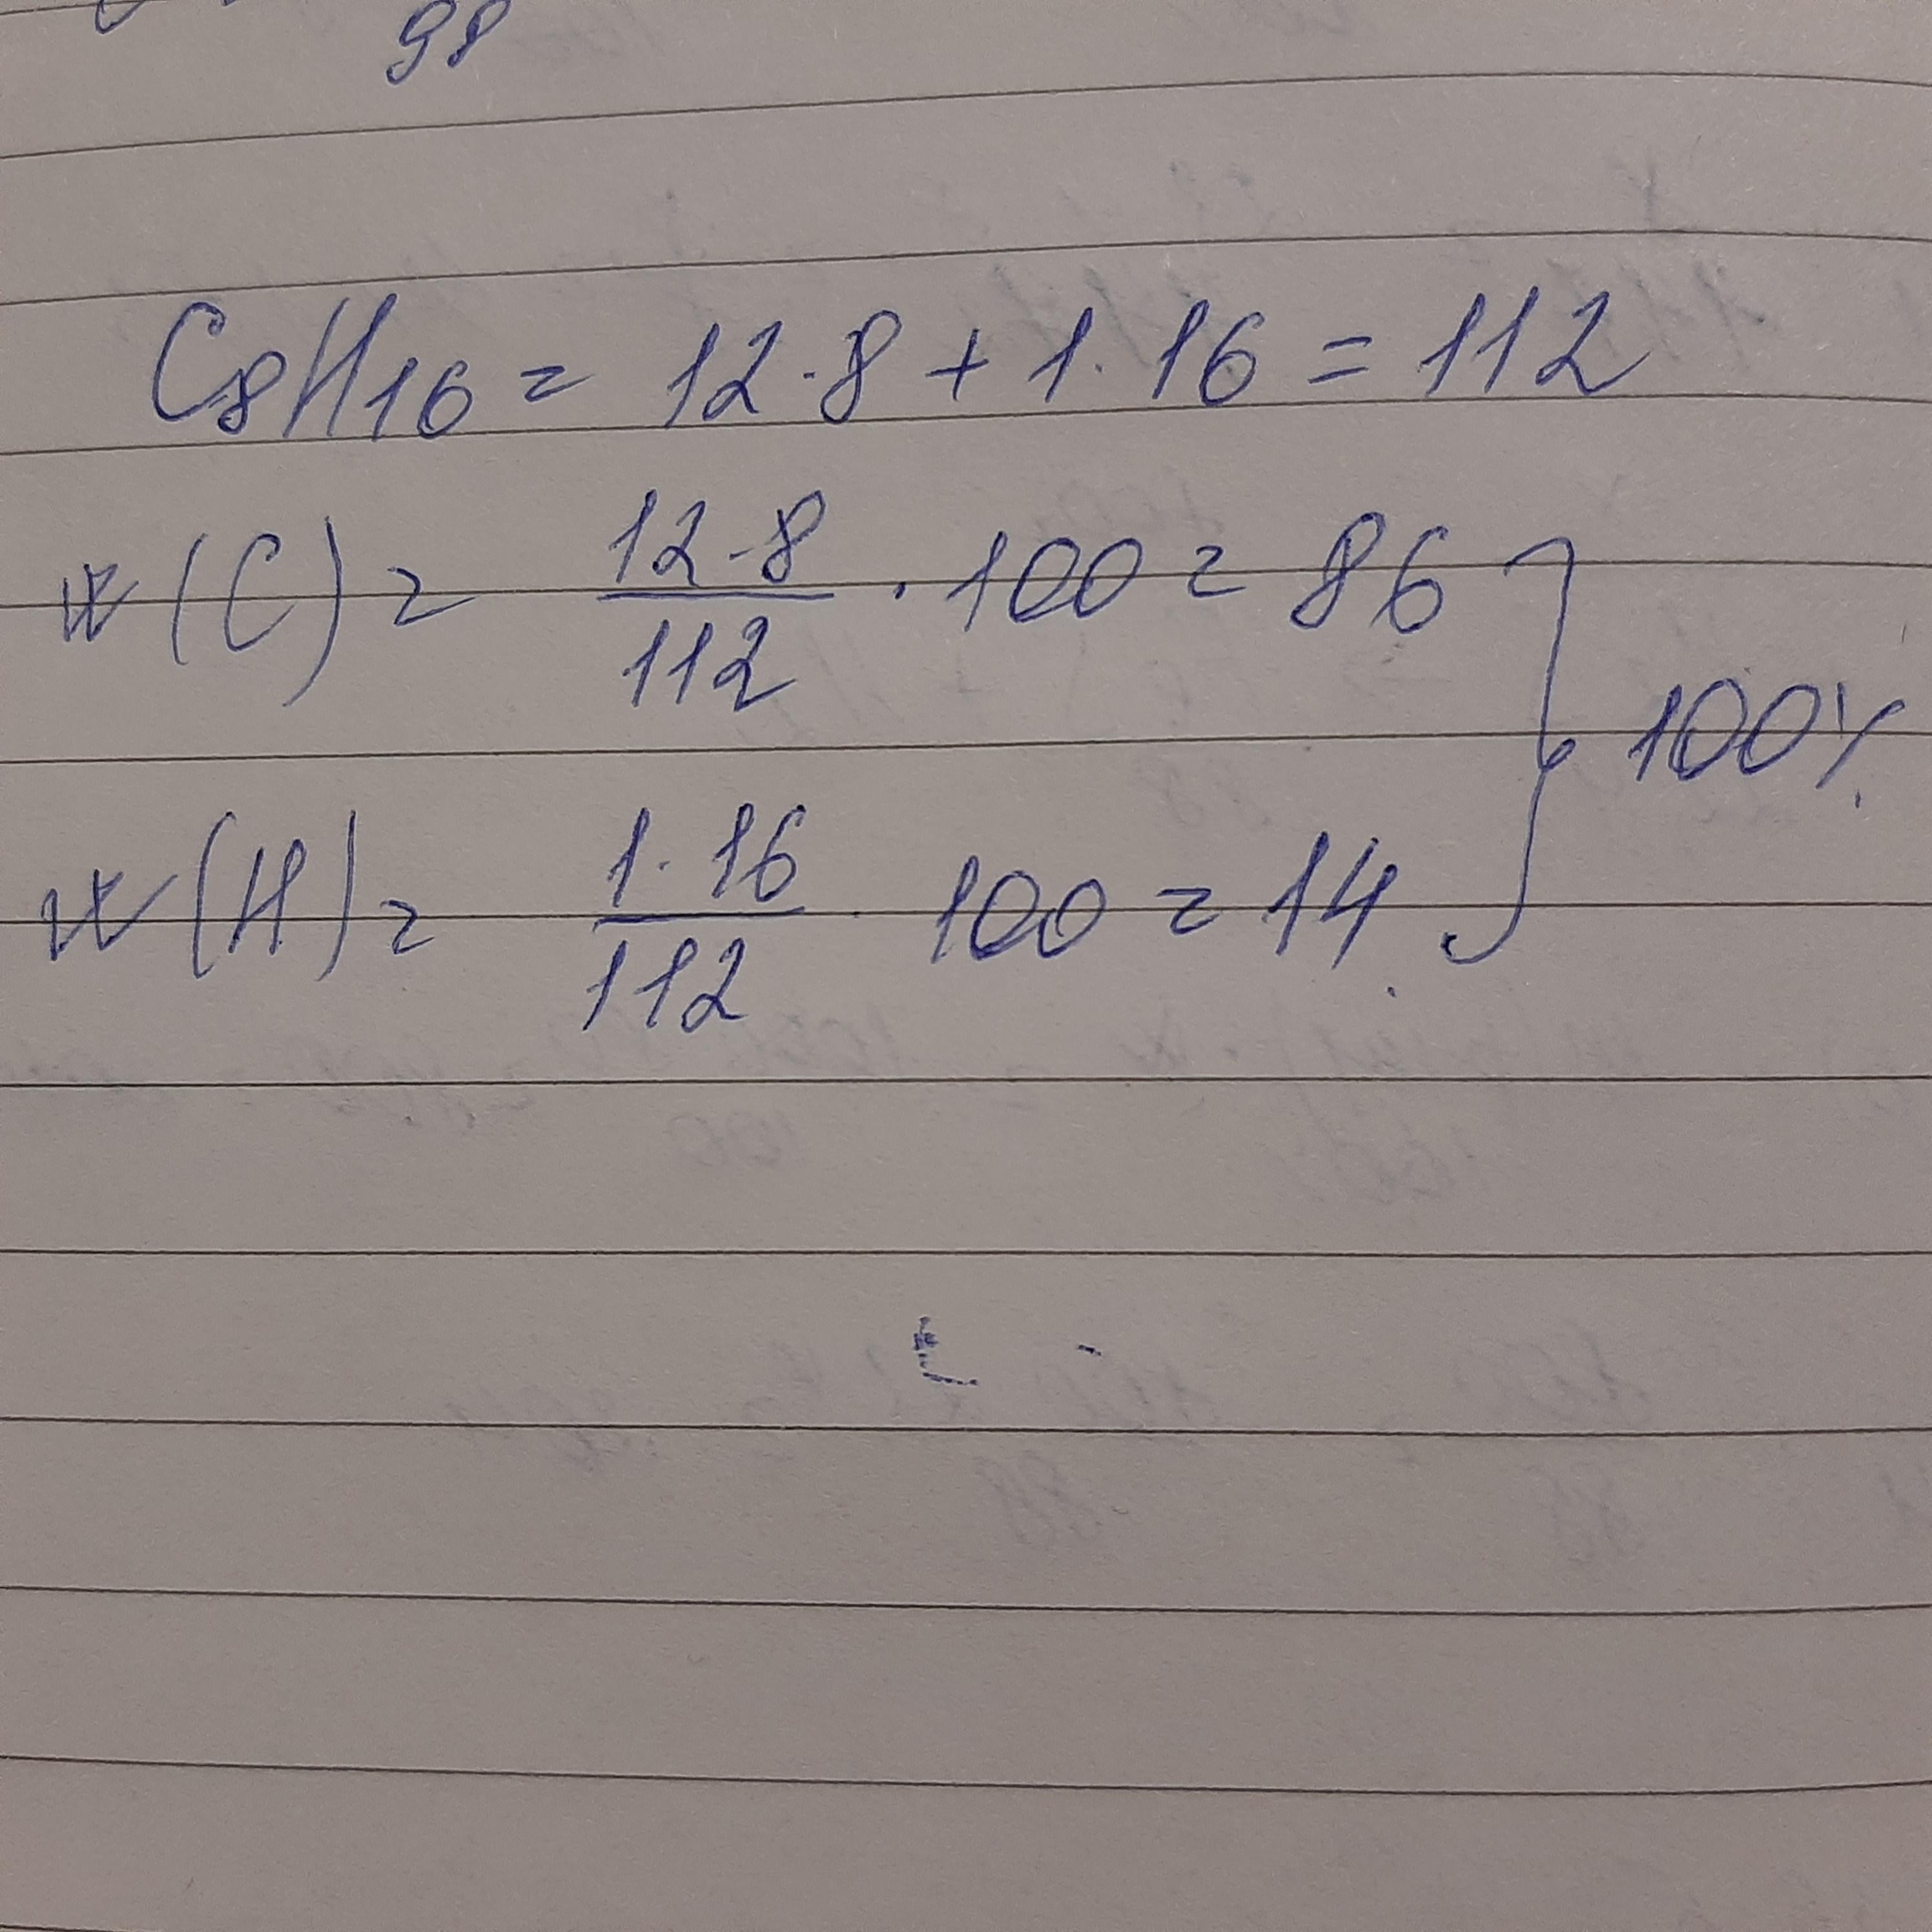 98
C8H16 = 12·8 + 1·16 = 112
w(C) = 12·8/112 · 100 = 86
100%
w(H) = 1·16/112 · 100 = 14